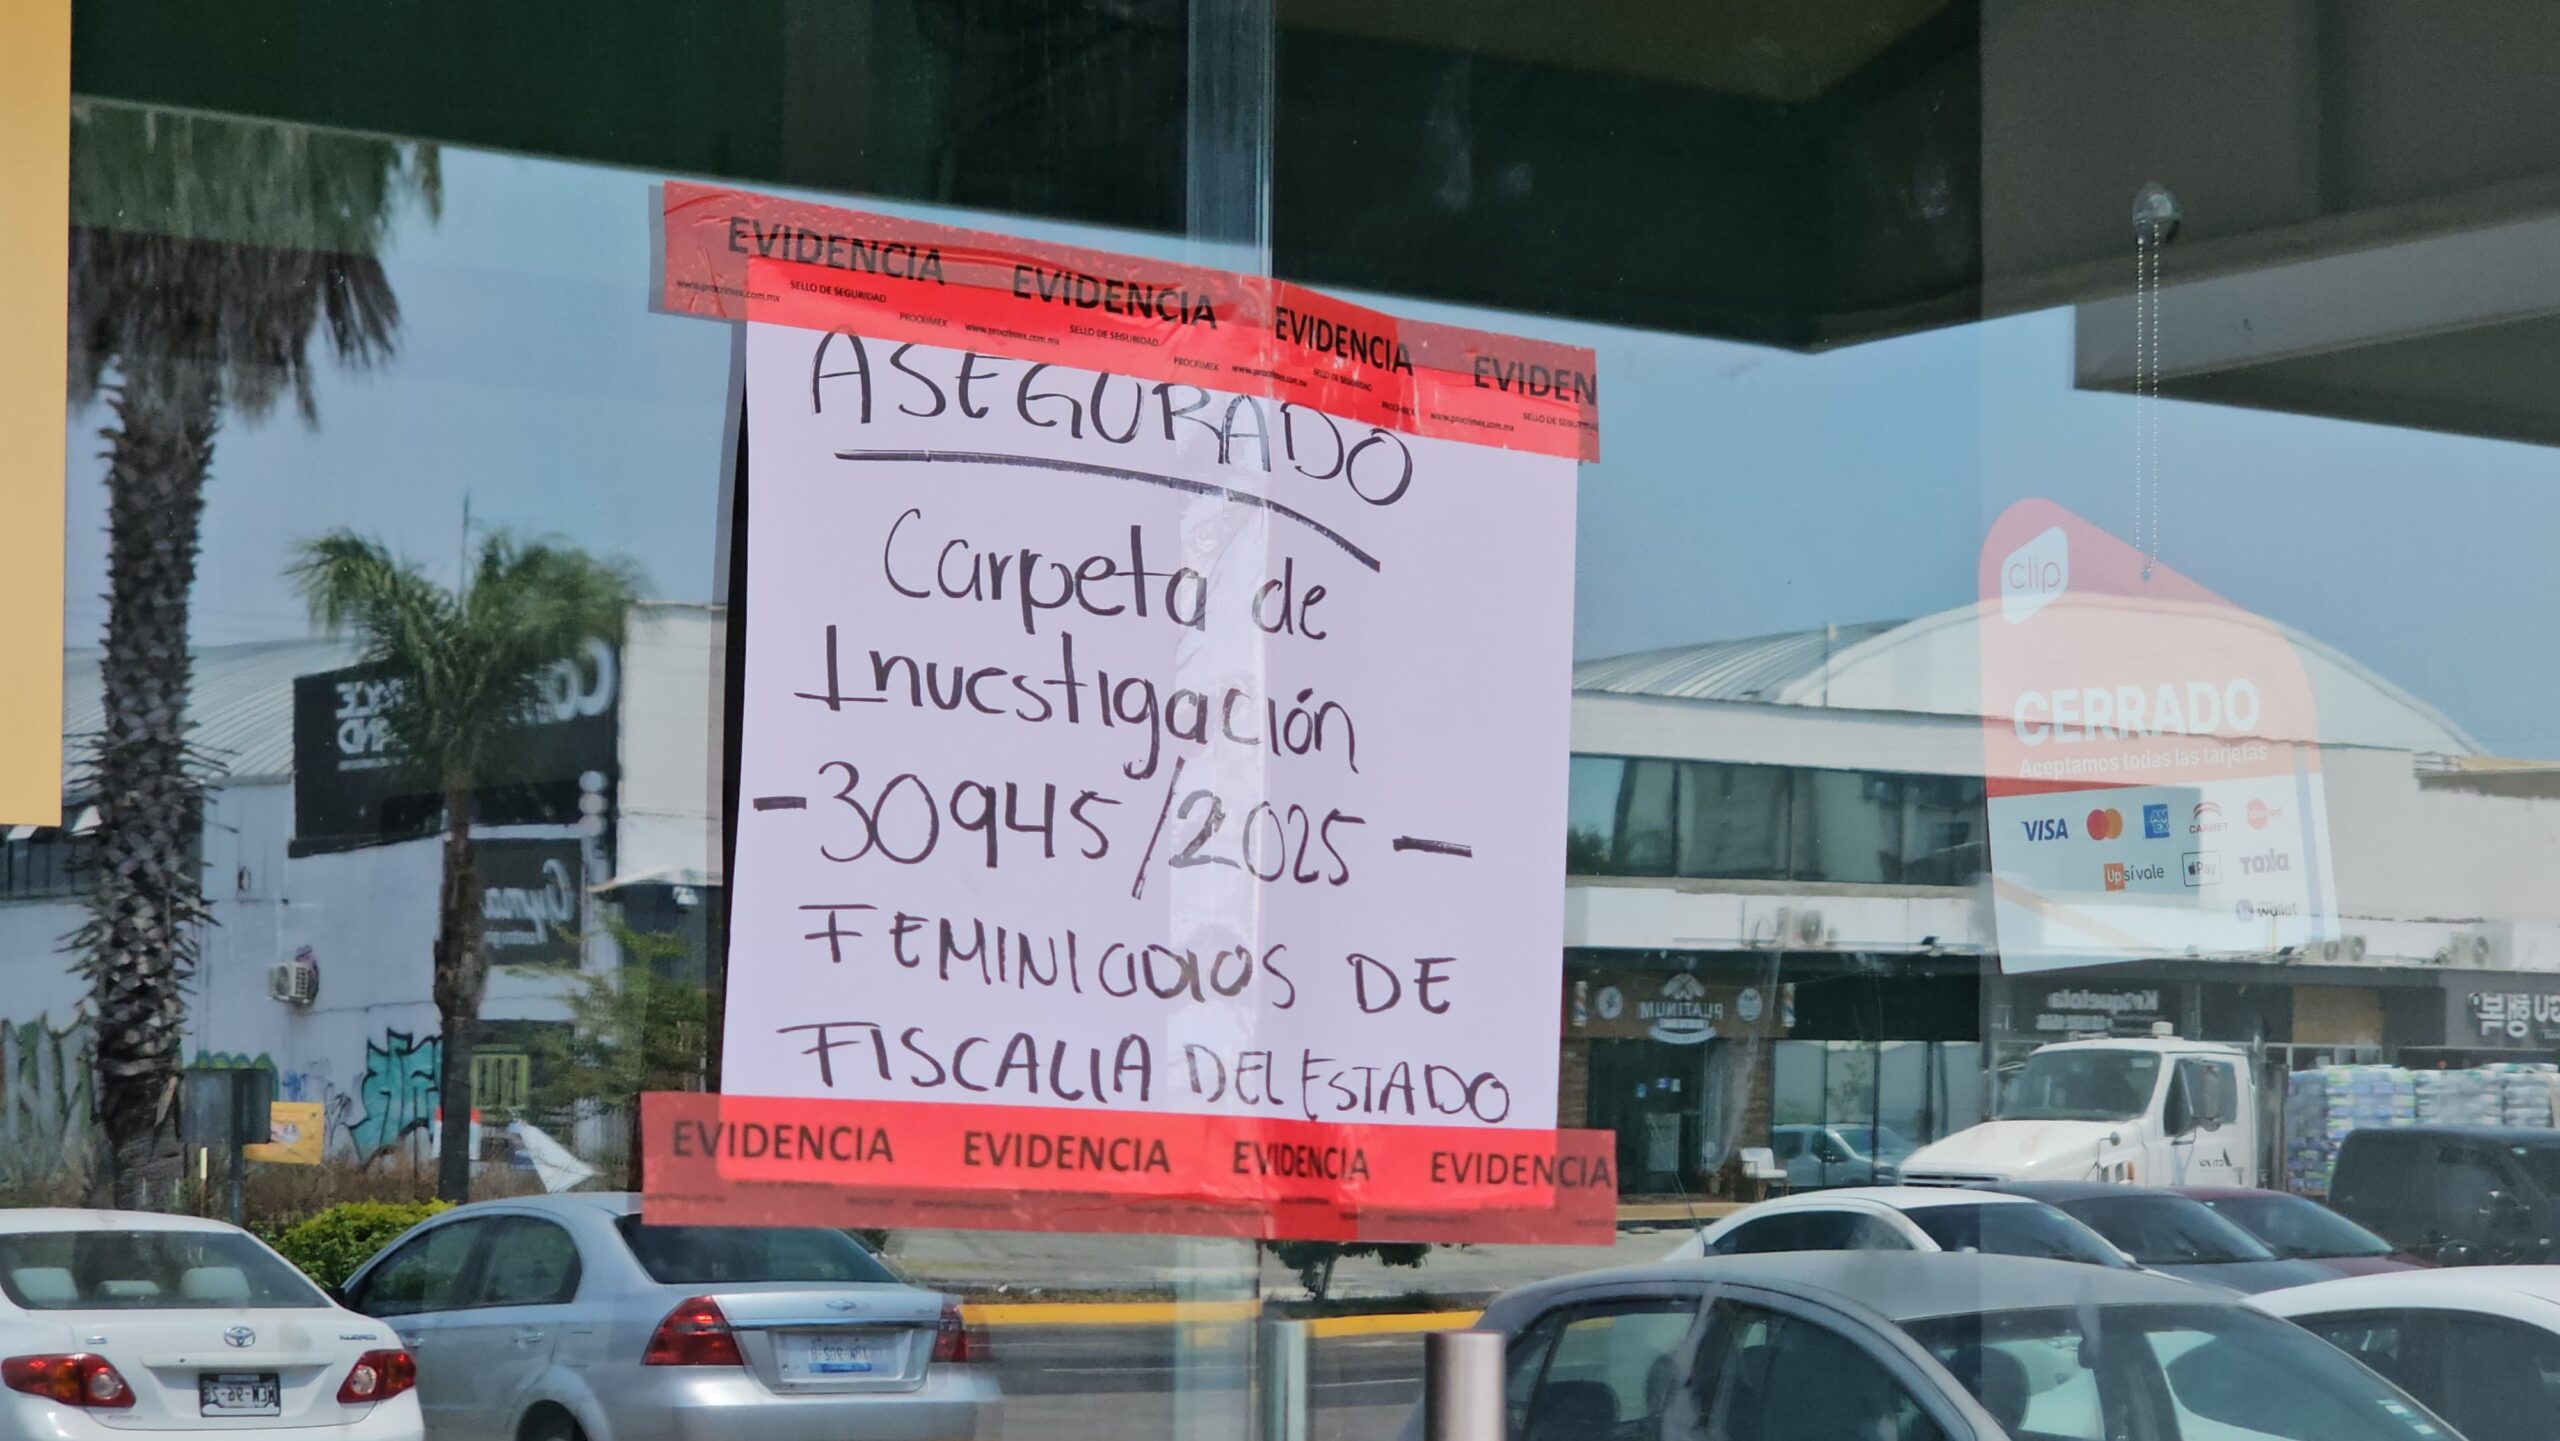 EVIDENCIA EVIDENCIA EVIDENCIA EVIDEN
www.procrimex.com.mx SELLO DE SEGURIDAD PROCRIMEX www.procrimex.com.mx SELLO DE SEGURIDAD PROCRIMEX www.procrimex.com.mx SELLO DE SEGURIDAD PROCRIMEX www.procrimex.com.mx SELLO DE SEGURIDAD
ASEGURADO
Carpeta de
Investigación
-30945/2025-
FEMINICIDIOS DE
FISCALIA DEL ESTADO
EVIDENCIA EVIDENCIA EVIDENCIA EVIDENCIA
clip
CERRADO
Aceptamos todas las tarjetas
VISA AMEX CARNET
Up sí vale Pay
wallet
PLATINUM